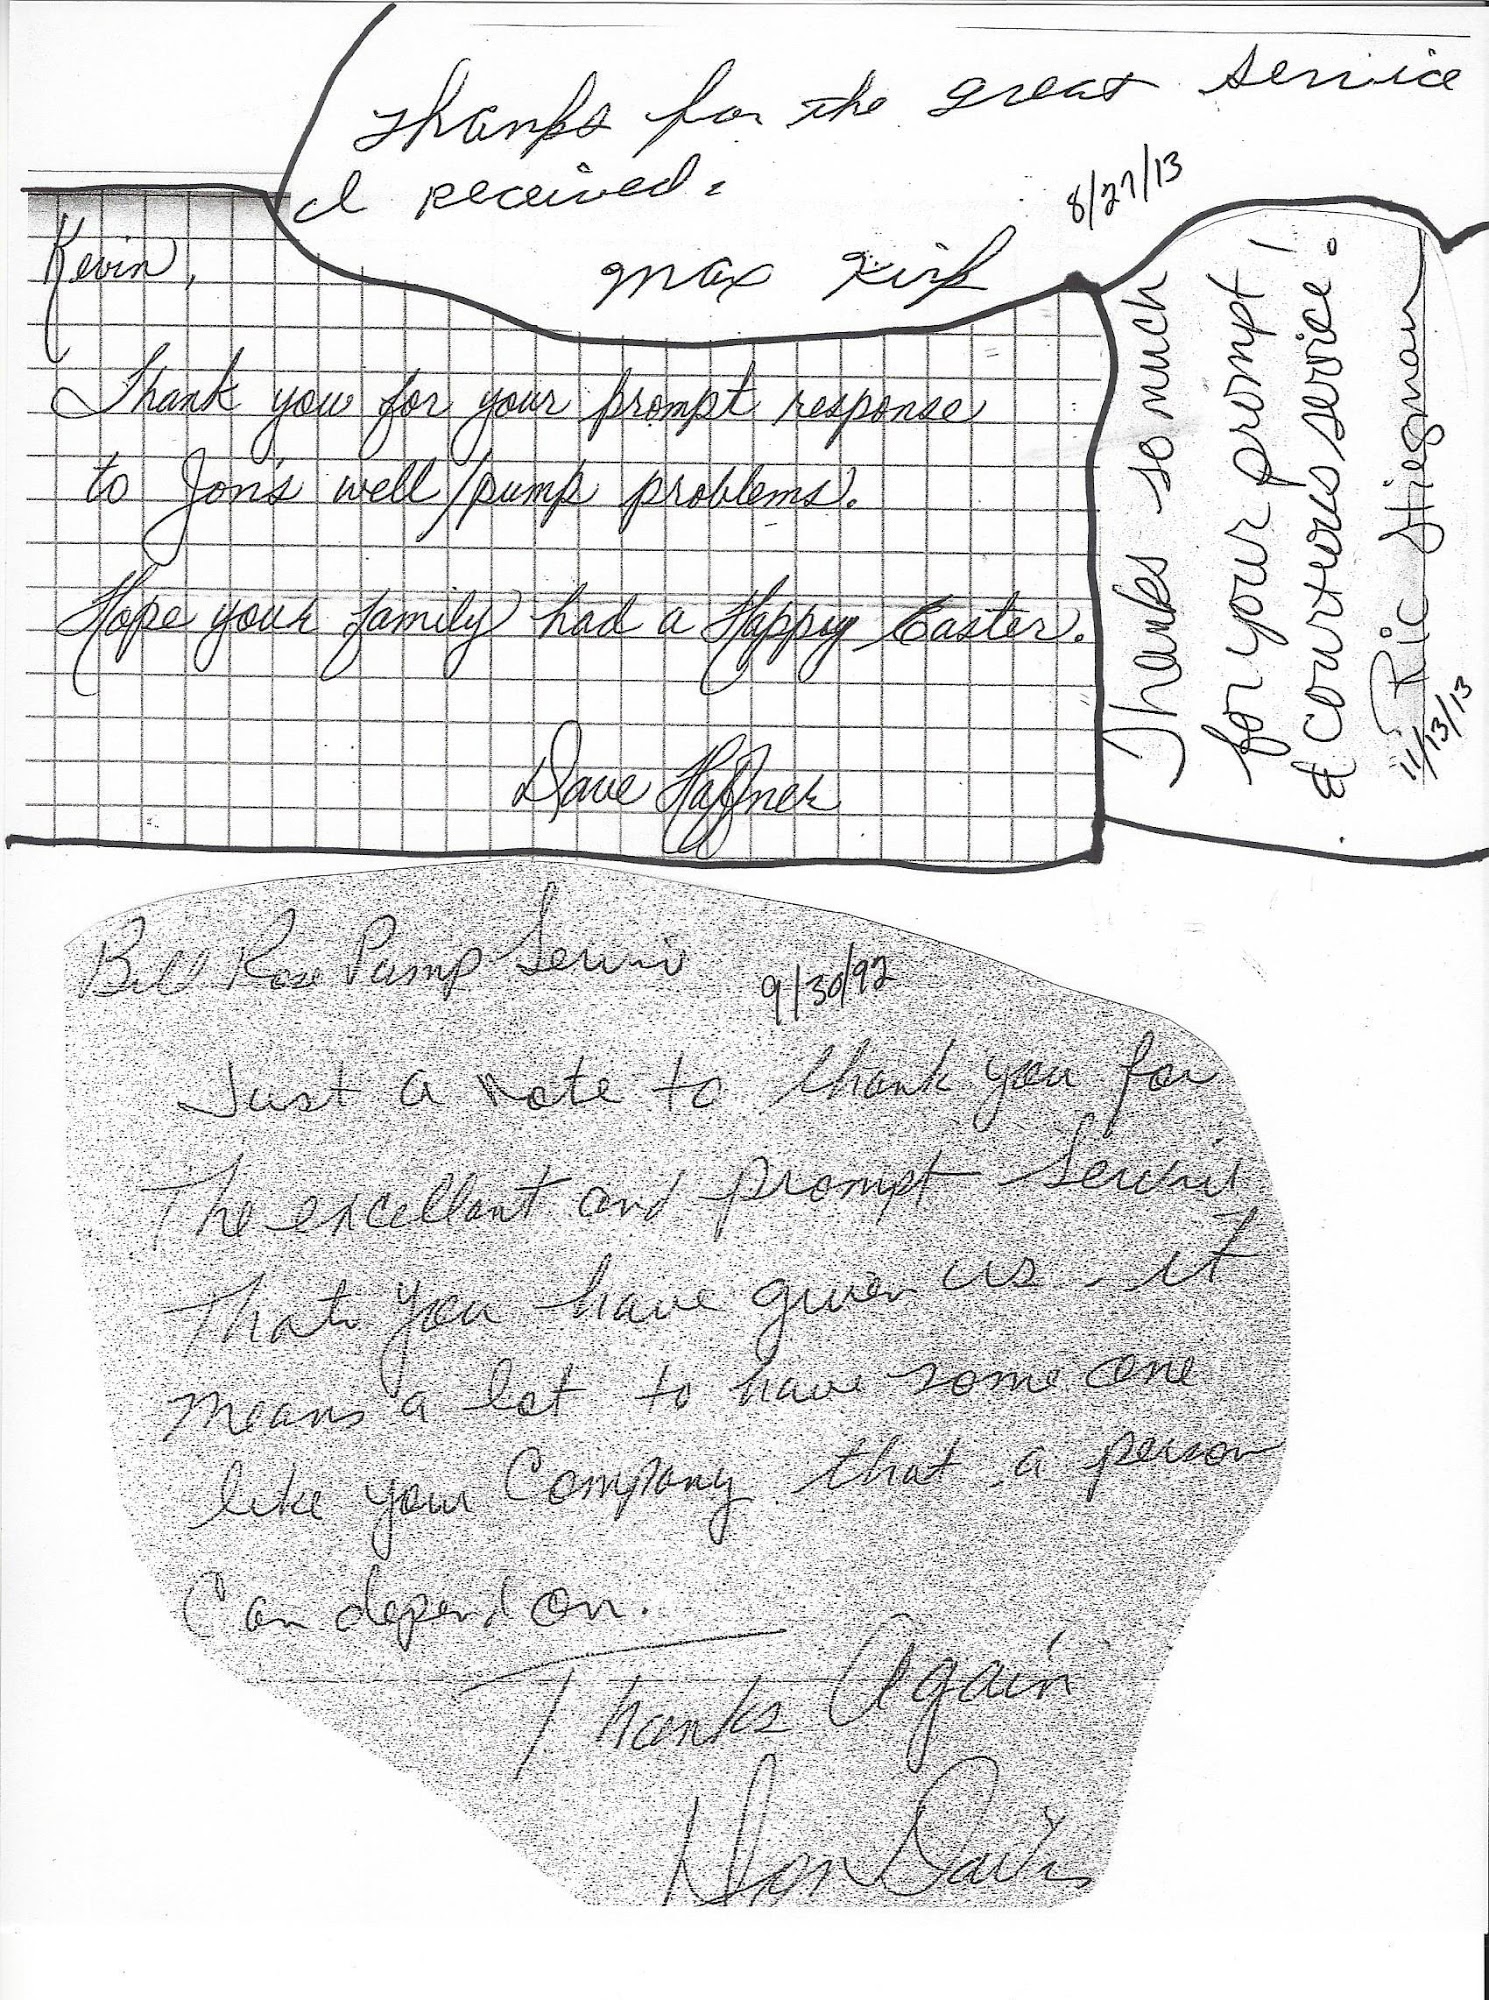 Thanks for the great service
I received.
8/27/13
Max Kirk
Kevin,
Thank you for your prompt response
to Jon's well/pump problems.
Hope your family had a Happy Easter.
Dave Haffner
Thanks so much
for your prompt!
& courteous service.
Ric Stiegman
11/13/13
Bill Rose Pump Servic
9/30/92
Just a note to thank you for
The excellant and prompt Servic
That you have given us - it
means a lot to have some one
like your Company that a person
Can depend on.
Thanks Again
Don Davis